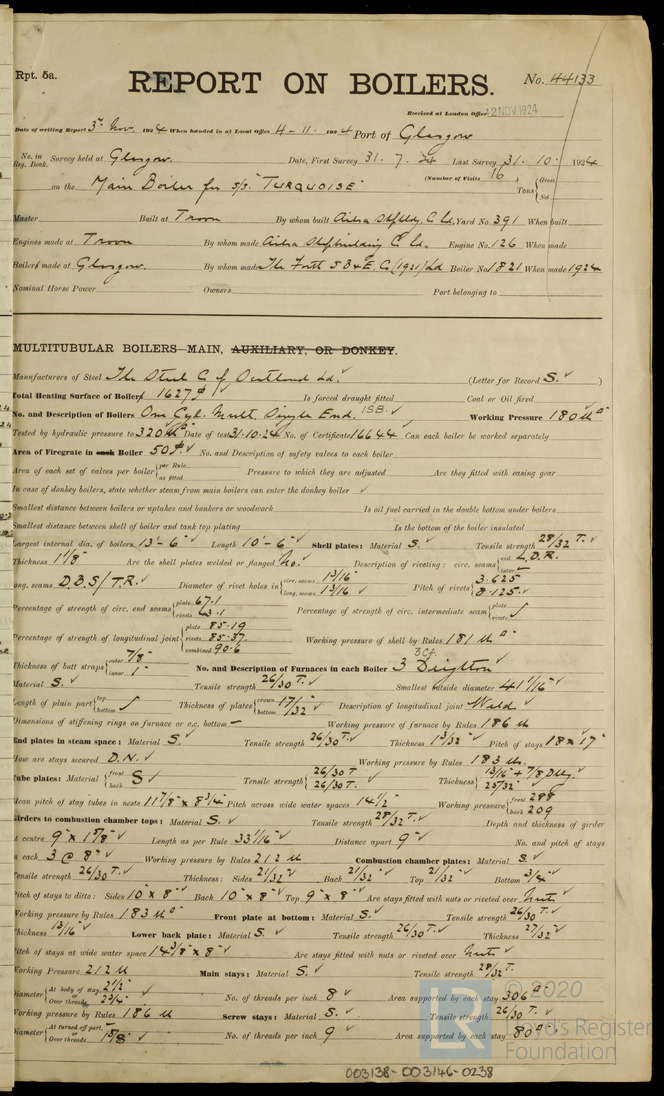 Rpt. 5a.
REPORT ON BOILERS.
No. 44133
Received at London Office 12 NOV 1924
Date of writing Report 3rd Nov. 1924 When handed in at Local Office 4-11- 1924 Port of Glasgow
No. in Reg. Book. Survey held at Glasgow. Date, First Survey 31. 7. 24 Last Survey 31. 10. 1924
on the Main Boiler for S/S "TURQUOISE" (Number of Visits 16) Tons {Gross Net
Master Built at Troon By whom built Ailsa Shipbldg. C. Ld. Yard No. 391 When built
Engines made at Troon By whom made Ailsa Shipbuilding C. Ld. Engine No. 126 When made
Boilers made at Glasgow. By whom made The Forth S B & E. C. (1921) Ld Boiler No. 1821 When made 1924
Nominal Horse Power Owners Port belonging to
MULTITUBULAR BOILERS—MAIN, AUXILIARY, OR DONKEY.
Manufacturers of Steel The Steel C. of Scotland Ld. (Letter for Record S. )
Total Heating Surface of Boilers 1627 Is forced draught fitted Coal or Oil fired
No. and Description of Boilers One Cyl. Mult Single End. 1SB. Working Pressure 180 lb
Tested by hydraulic pressure to 320 lb Date of test 31.10.24 No. of Certificate 16644 Can each boiler be worked separately
Area of Firegrate in each Boiler 50 No. and Description of safety valves to each boiler
Area of each set of valves per boiler {per Rule as fitted Pressure to which they are adjusted Are they fitted with easing gear
In case of donkey boilers, state whether steam from main boilers can enter the donkey boiler
Smallest distance between boilers or uptakes and bunkers or woodwork Is oil fuel carried in the double bottom under boilers
Smallest distance between shell of boiler and tank top plating Is the bottom of the boiler insulated
Largest internal dia. of boilers 13'-6" Length 10'-6" Shell plates: Material S. Tensile strength 28/32 T.
Thickness 1 1/8" Are the shell plates welded or flanged No. Description of riveting: circ. seams {end L.D.R. inter.
long. seams D.B.S/T.R. Diameter of rivet holes in {circ. seams 1 3/16" long. seams 1 3/16" Pitch of rivets {3.625 8.125"
Percentage of strength of circ. end seams {plate 67.1 rivets 43.1 Percentage of strength of circ. intermediate seam {plate rivets
Percentage of strength of longitudinal joint {plate 85.19 rivets 85.37 combined 90.6 Working pressure of shell by Rules 181 lb
Thickness of butt straps {outer 7/8" inner 1" No. and Description of Furnaces in each Boiler 3 Deighton 3 Cf.
Material S. Tensile strength 26/30 T. Smallest outside diameter 41 1/16"
Length of plain part {top bottom Thickness of plates {crown bottom 17/32" Description of longitudinal joint Weld.
Dimensions of stiffening rings on furnace or c.c. bottom — Working pressure of furnace by Rules 186 lb
End plates in steam space: Material S. Tensile strength 26/30 T. Thickness 1 3/32" Pitch of stays 18" x 17"
How are stays secured D.N. Working pressure by Rules 183 lb.
Tube plates: Material {front back S Tensile strength {26/30 T 26/30 T. Thickness {13/16" + 7/8 Dblg. 25/32"
Mean pitch of stay tubes in nests 11 7/8" x 8 3/4 Pitch across wide water spaces 14 1/2 Working pressure {front 288 back 209
Girders to combustion chamber tops: Material S. Tensile strength 28/32 T. Depth and thickness of girder
at centre 9" x 1 5/8" Length as per Rule 33 1/16" Distance apart 9" No. and pitch of stays
in each 3 @ 8" Working pressure by Rules 212 lb Combustion chamber plates: Material S.
Tensile strength 26/30 T. Thickness: Sides 21/32" Back 21/32" Top 21/32" Bottom 3/4"
Pitch of stays to ditto: Sides 10" x 8" Back 10" x 8" Top 9" x 8" Are stays fitted with nuts or riveted over Nuts
Working pressure by Rules 183 lb Front plate at bottom: Material S. Tensile strength 26/30 T.
Thickness 13/16" Lower back plate: Material S. Tensile strength 26/30 T. Thickness 27/32"
Pitch of stays at wide water space 14 3/8" x 8" Are stays fitted with nuts or riveted over Nuts
Working Pressure 212 lb Main stays: Material S. Tensile strength 28/32 T.
Diameter {At body of stay, 2 1/2" Over threads 2 3/4" No. of threads per inch 8 Area supported by each stay 306
Working pressure by Rules 186 lb Screw stays: Material S. Tensile strength 26/30 T.
Diameter {At turned off part, Over threads 1 5/8" No. of threads per inch 9 Area supported by each stay 80
© 2020
LR
Lloyd's Register
Foundation
003138-003146-0238